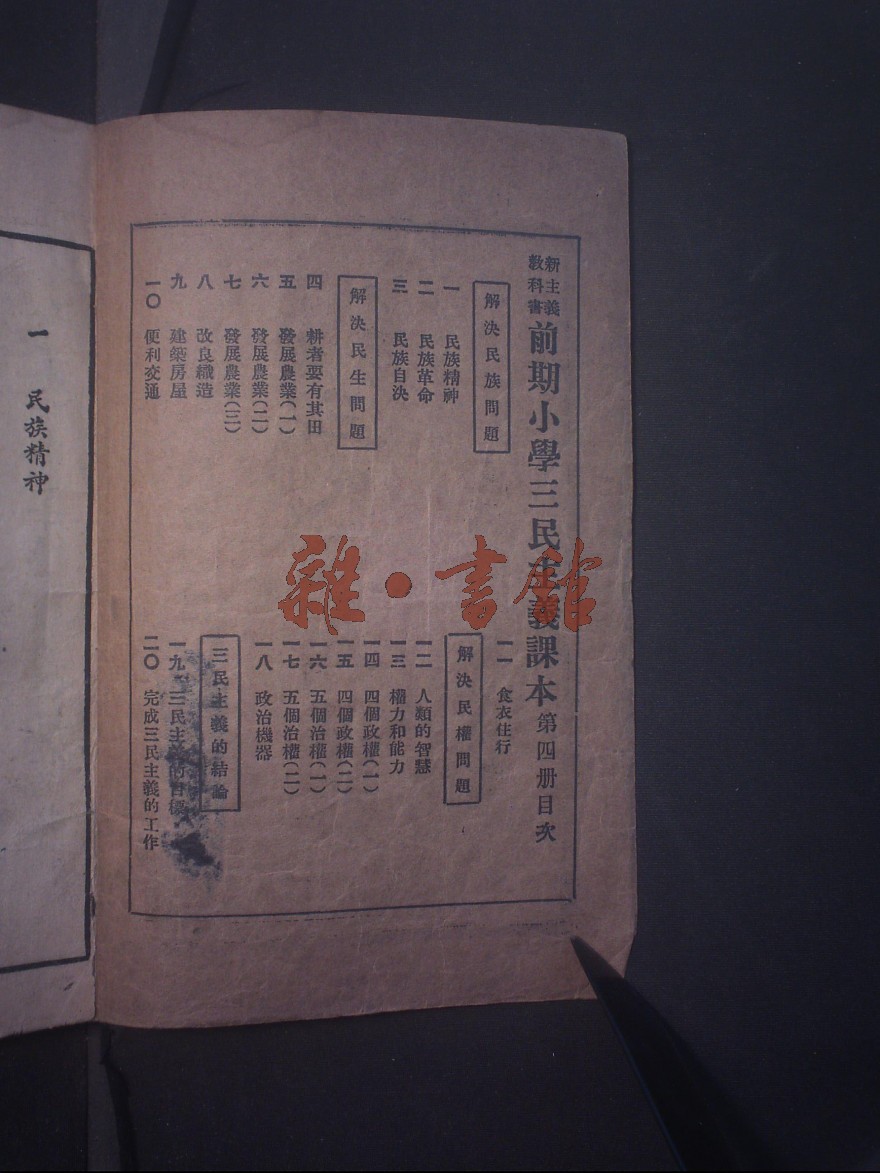 新主義教科書 前期小學三民主義課本 第四册目次
解決民族問題
一 民族精神
二 民族革命
三 民族自決
解決民生問題
四 耕者要有其田
五 發展農業(一)
六 發展農業(二)
七 發展農業(三)
八 改良織造
九 建築房屋
一〇 便利交通
一一 食衣住行
解決民權問題
一二 人類的智慧
一三 權力和能力
一四 四個政權(一)
一五 四個政權(二)
一六 五個治權(一)
一七 五個治權(二)
一八 政治機器
三民主義的結論
一九 三民主義的目標
二〇 完成三民主義的工作
一 民族精神
雜·書館